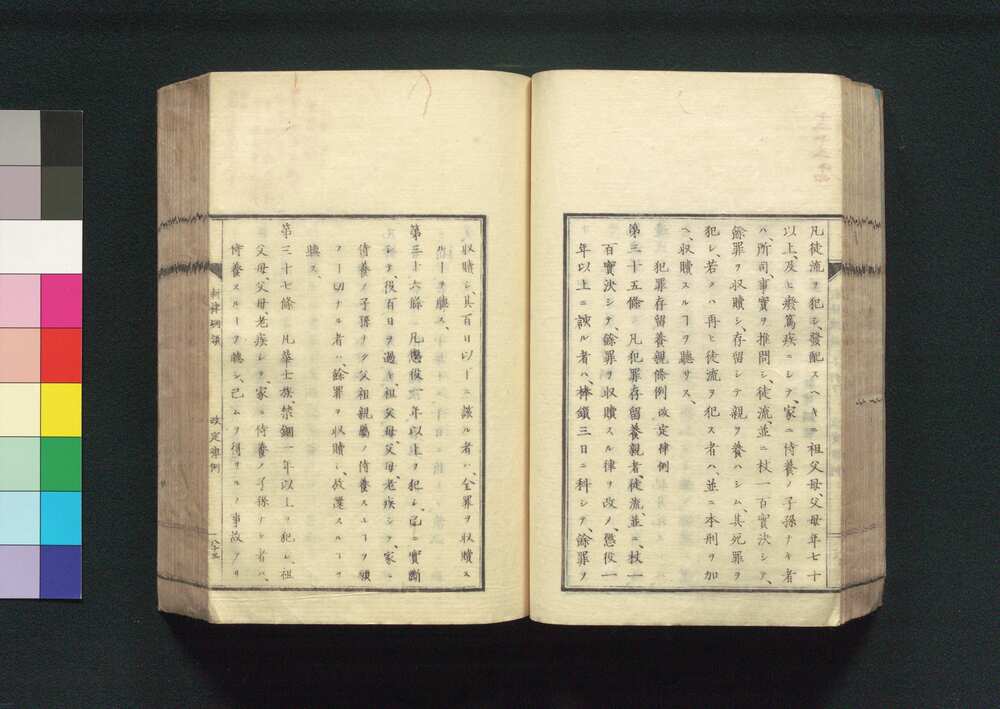 凡徒流ヲ犯シ、發配スヘキニ、祖父母、父母年七十
以上、及ヒ癈篤疾ニシテ、家ニ侍養ノ子孫ナキ者
ハ、所司、事實ヲ推問シ、徒流、並ニ杖一百實決シテ、
餘罪ヲ収贖シ、存留シテ親ヲ養ハシム、其死罪ヲ
犯シ、若クハ再ヒ徒流ヲ犯ス者ハ、並ニ本刑ヲ加
ヘ、収贖スルヿヲ聽サス、
犯罪存留養親條例 改定律例
第三十五條 凡犯罪存留養親者徒流、並ニ、杖一
百實決シテ、餘罪ヲ収贖スル律ヲ改メ、懲役一
年以上ニ該ル者ハ、棒鎖三日ニ科シテ、餘罪ヲ
収贖シ、其百日以下ニ該ル者ハ、全罪ヲ収贖ス
ルヿヲ聽ス、
第三十六條 凡懲役一年以上ヲ犯シ、已ニ實斷
シテ、役百日ヲ過キ、祖父母、父母、老疾シテ、家ニ
侍養ノ子孫ナク、父祖親屬ノ侍養スルヿヲ願
フヿ切ナル者ハ、餘罪ヲ収贖シ、放還スルヿヲ
聽ス、
第三十七條 凡華士族禁錮一年以上ヲ犯シ、祖
父母、父母、老疾シテ、家ニ侍養ノ子孫ナキ者ハ、
侍養スルヿヲ聽シ、已ムヲ得サルノ事故アリ
新律綱領
改定律例